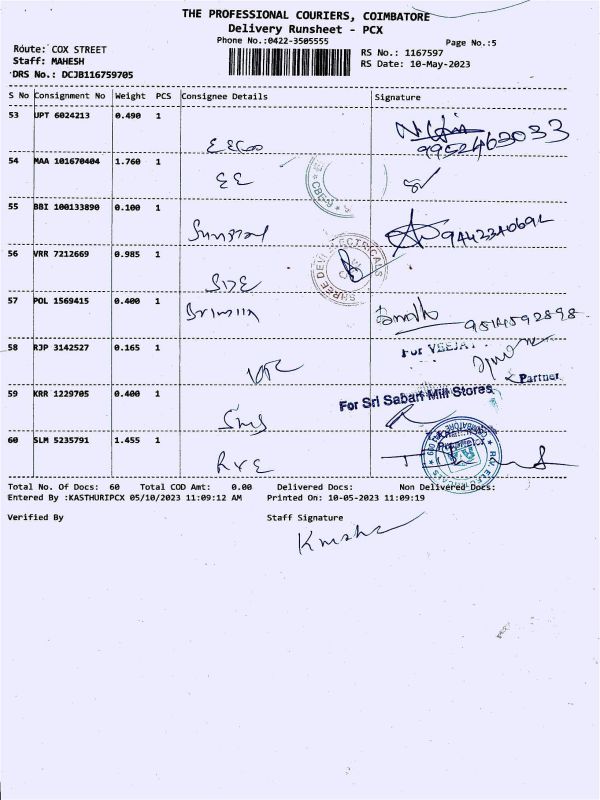 THE PROFESSIONAL COURIERS, COIMBATORE
Delivery Runsheet - PCX
Phone No.:0422-3505555
Page No.:5
Route: COX STREET
RS No.: 1167597
Staff: MAHESH
RS Date: 10-May-2023
DRS No.: DCJB116759705
S No Consignment No Weight PCS Consignee Details Signature
53 UPT 6024213 0.490 1
9952463033
54 MAA 101670404 1.760 1
EE
55 BBI 100133890 0.100 1
9442340692
56 VRR 7212669 0.985 1
SHREE DEVI ELECTRICALS
57 POL 1569415 0.400 1
9514592898
58 RJP 3142527 0.165 1
For VEEJA
Partner
59 KRR 1229705 0.400 1
For Sri Sabari Mill Stores
Sms
60 SLM 5235791 1.455 1
RVE
Total No. Of Docs: 60 Total COD Amt: 0.00 Delivered Docs: Non Delivered Docs:
Entered By :KASTHURIPCX 05/10/2023 11:09:12 AM Printed On: 10-05-2023 11:09:19
Verified By Staff Signature